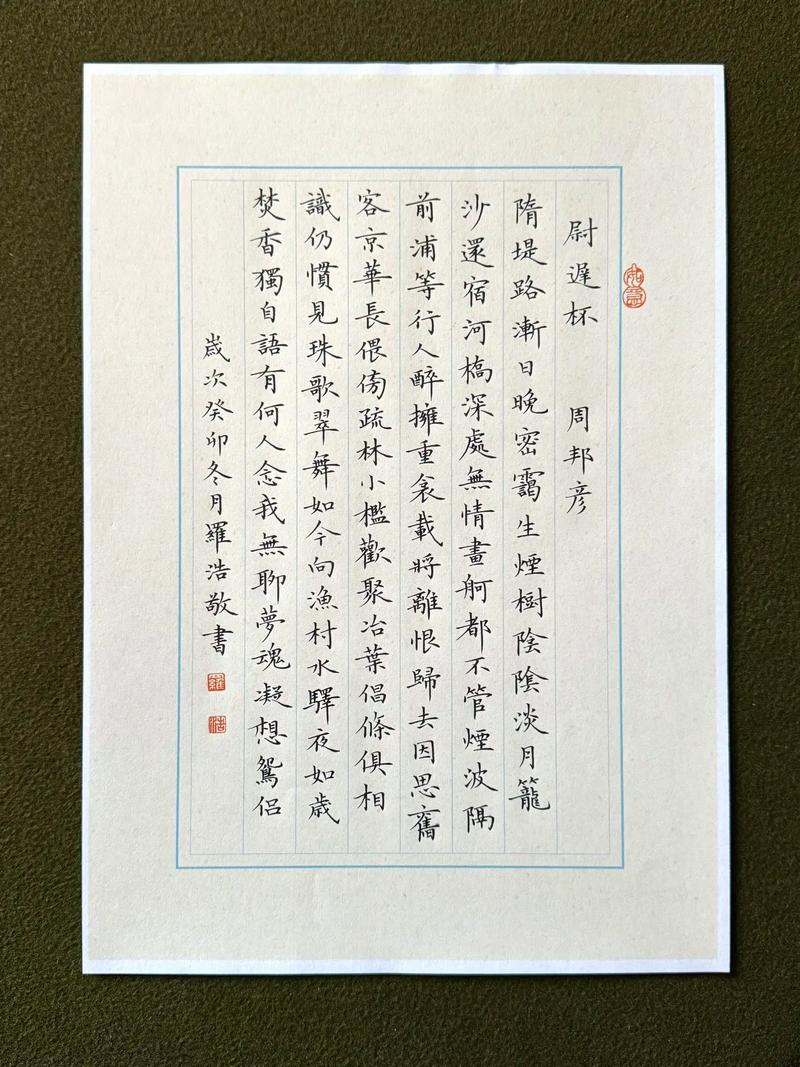 尉遲杯 周邦彦
隋堤路漸日晚密靄生煙樹陰陰淡月籠
沙還宿河橋深處無情畫舸都不管煙波隔
前浦等行人醉擁重衾載將離恨歸去因思舊
客京華長偎傍疏林小檻歡聚冶葉倡條俱相
識仍慣見珠歌翠舞如今向漁村水驛夜如歲
焚香獨自語有何人念我無聊夢魂凝想鴛侶
歲次癸卯冬月羅浩敬書
羅
浩
如意